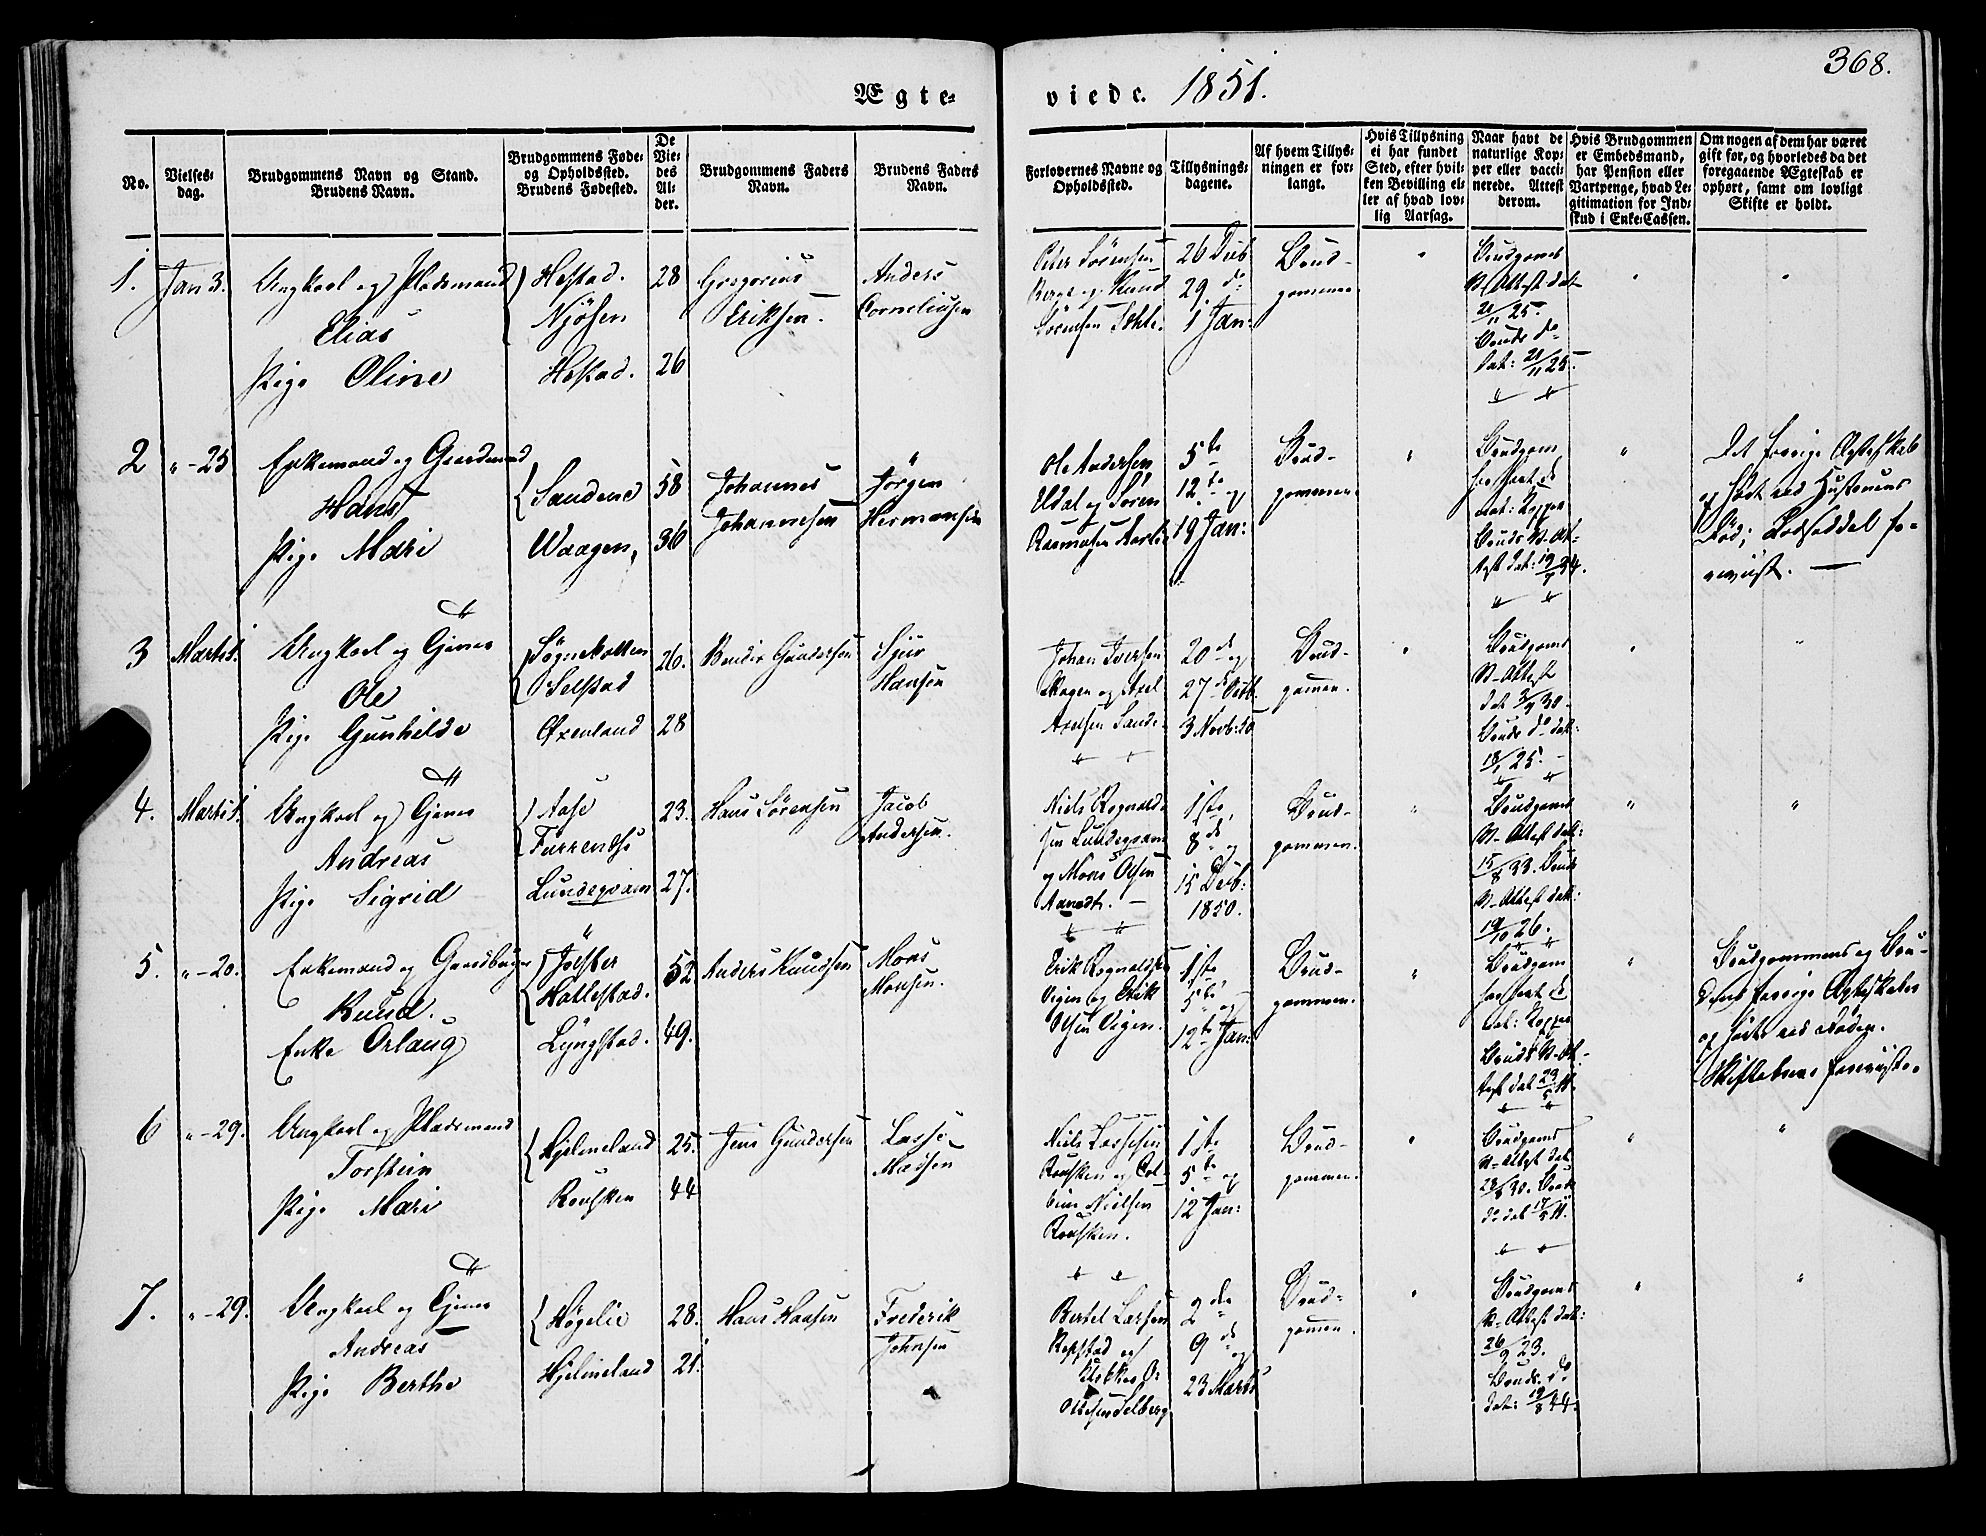 368.
Ægte-
viede. 1851.
No.
Vielses-
dag.
Brudgommens Navn og Stand.
Brudens Navn.
Brudgommens Føde-
og Opholdssted.
Brudens Fødested.
De
Vie-
des
Al-
der.
Brudgommens Faders
Navn.
Brudens Faders
Navn.
Forlovernes Navne og
Opholdssted.
Tillysnings-
dagene.
Af hvem Tillys-
ningen er for-
langt.
Hvis Tillysning
ei har fundet
Sted, efter hvil-
ken Bevilling el-
ler af hvad lov-
lig Aarsag.
Naar havt de
naturlige Kop-
per eller vacci-
nerede. Attest
derom.
Hvis Brudgommen
er Embedsmand,
har Pension eller
Vartpenge, hvad Le-
gitimation for Ind-
skud i Enke-Cassen.
Om nogen af dem har været
gift før, og hvorledes da det
foregaaende Ægteskab er
ophørt, samt om lovligt
Skifte er holdt.
1. Jan 3. Ungkarl og Pladsmand
Elias
Pige Oline
Hestad.
Njøsen
Hestad.
28
26
Gregorius
Eriksen
Anders
Corneliusen
Peter Sörensen
Berge og Knud
Sörensen
26 Deb
29. do
1 Jan:
Brud-
gommen
Brudgoms
V-Attest dat
21/11 25.
Bruds do
Dat: 21/11 25.
2 " - 25 Enkemand og Gaardmand
Hans
Pige Mari
Sandene
Waagen
58
36
Johannes
Johannesen
Jörgen
Hermansen
Ole Andersen
Eldal og Sören
Rasmusen
5te
12te og
19 Jan:
Brud-
gommen
Brudgom
Nat: Kopper
Bruds V-At-
test dat: 19/7 34.
Det forrige Ægteskab
ophørt ved Hustruens
Död;
3 Marts 1. Ungkarl og Tjener
Ole
Pige Gunhilde
Sögnekotten
Selstad
Öxenland
26.
28
Bendix Gundersen
Sjur
Hansen
Johan Iversen
Skogen og Axel
Axelsen Sande
20de og
27de Octb.
3 Novb. 50
Brud-
gommen.
Brudgoms
V-Attest
dat 30
Bruds do dat:
25.
4. Marts 1. Ungkarl og Tjener
Andreas
Pige Sigrid
Aase
Lundeqvam
23.
27.
Hans Sörensen
Jacob
Andersen.
Niels Rognald-
sen Lundeqvam
og Mons Olsen
1ste,
8de og
15 Decb:
1850.
Brud-
gommen.
Brudgoms
V-Attest dat:
15/8 33. Bruds
V-Attest dat:
19/10 26.
5. " - 20. Enkemand og Gaardbruger
Knud.
Enke Orlaug
Jölster
Hattestad.
Lyngstad.
52
49.
Anders Knudsen
Mons
Monsen.
Erik Rognaldsen
Vigen og Erik
Olsen Vigen.
1ste
5te og
12te Jan:
Brud-
gommen.
Brudgom
Nat: Kopper
Bruds V-At-
test dat
Brudgommens og Bru-
dens forrige Ægteskaber
ophørt ved Døden.
6 " - 29. Ungkarl og Pladsmand
Torstein
Pige Mari
Hjelmeland
Rousken
25.
44
Jens Gundersen
Lasse
Madsen
Niels Lassesen
Rousken og
Nielsen
Rousken.
1ste
5te og
12 Jan:
Brud-
gommen.
Brudgoms
V-Attest dat
30. Bruds
do dat
7. " - 29. Ungkarl og Tjener
Andreas
Pige Berthe
Högelie
Hjelmeland
28.
21.
Hans Hansen
Frederik
Johnsen
Bertel Larsen
Repstad og
Selberg
2den
9de og
23 Marts
Brud-
gommen.
Brudgoms
V-Attest dat:
26/9 23.
Bruds do
dat: 19/8 44.